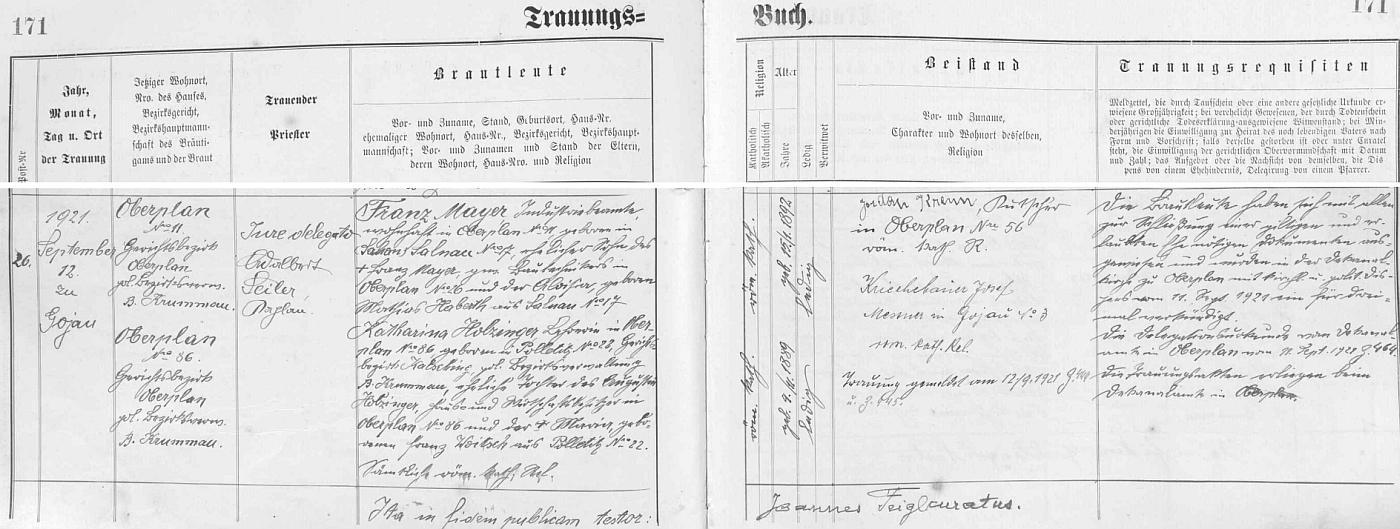 171
Trauungs=
Buch.
171
Post-Nr
Jahr,
Monat,
Tag u. Ort
der Trauung
Jetziger Wohnort,
Nro. des Hauses,
Bezirksgericht,
Bezirkshauptmann-
schaft des Bräuti-
gams und der Braut
Trauender
Priester
Brautleute
Vor- und Zuname, Stand, Geburtsort, Haus-Nr.
ehemaliger Wohnort, Haus-Nr., Bezirksgericht, Bezirkshaupt-
mannschaft; Vor- und Zunamen und Stand der Eltern,
deren Wohnort, Haus-Nro. und Religion
Religion
Katholisch
Akatholisch
Alter
Jahre
Ledig
Verwitwet
Beistand
Vor- und Zuname,
Charakter und Wohnort desselben,
Religion
Trauungsrequisiten
Meldzettel, die durch Taufschein oder eine andere gesetzliche Urkunde er-
wiesene Großjährigkeit; bei verehelicht Gewesenen, der durch Todtenschein
oder gerichtliche Todeserklärung ausgewiesene Witwenstand; bei Min-
derjährigen die Einwilligung zu Heirat des noch lebendigen Vaters nach
Form und Vorschrift; falls derselbe gestorben ist oder unter Curatel
steht, die Einwilligung der gerichtlichen Obervormundschaft mit Datum
und Zahl; das Aufgebot oder die Nachsicht von demselben, die Dis
pens von einem Ehehindernis, Delegirung von einem Pfarrer.
20.
1921.
September
12.
zu
Gojau
Oberplan
No 91.
Gerichtsbezirk
Oberplan
pol. Bezirksverw.
B. Krummau.
Oberplan
No 86.
Gerichtsbezirk
Oberplan
pol. Bezirksverw.
B. Krummau.
Jure delegato
Adalbert
Seiler,
Kaplan.
Franz Mayer Industriebeamte,
wohnhaft in Oberplan No 91 geboren in
Salnau No 17, ehelicher Sohn des
+ Franz Mayer, gew. in
Oberplan No 26 und der Aloisia, geboren
Mathias Haberth aus Salnau No 17
Katharina Holzinger Lehrerin in Ober-
plan No 86 geboren in Polletitz No 22, Gerichts-
bezirk Kalsching, pol. Bezirksverwaltung
B. Krummau, eheliche Tochter des Augustin
Holzinger, Haus- und Wirtschaftsbesitzer in
Oberplan No 86 und der + Maria, gebo-
renen Franz Woitsch aus Polletitz No 22.
Sämtliche röm. kath. Rel.
röm. kath.
geb. 9.4. 1889
ledig
röm. kath.
geb. 15/4. 1892
ledig
Jordan Krenn, Kutscher
in Oberplan No 56
röm. kath. R.
Kriechbauer Josef
Mesner in Gojau No 3
rom. kath. Rel.
Trauung gemeldet am 12/9. 1921
Die Brautleute haben sich mit allen
zur Schließung einer giltigen und er-
laubten Ehe nötigen Dokumenten aus-
gewiesen und wurden in der Dekanal-
kirche zu Oberplan mit kirchl. u. polit. Dis-
pens vom 11. Sept. 1921 ein für drei-
mal verkündigt.
Die Delegationsurkunde vom Dekanal-
amte in Oberplan vom 11. Sept. 1921 Z. 464.
Die Trauungsakten erliegen beim
Dekanalamte in Oberplan.
Ita in fidem publicam testor:
Joannes Feigl curatus.